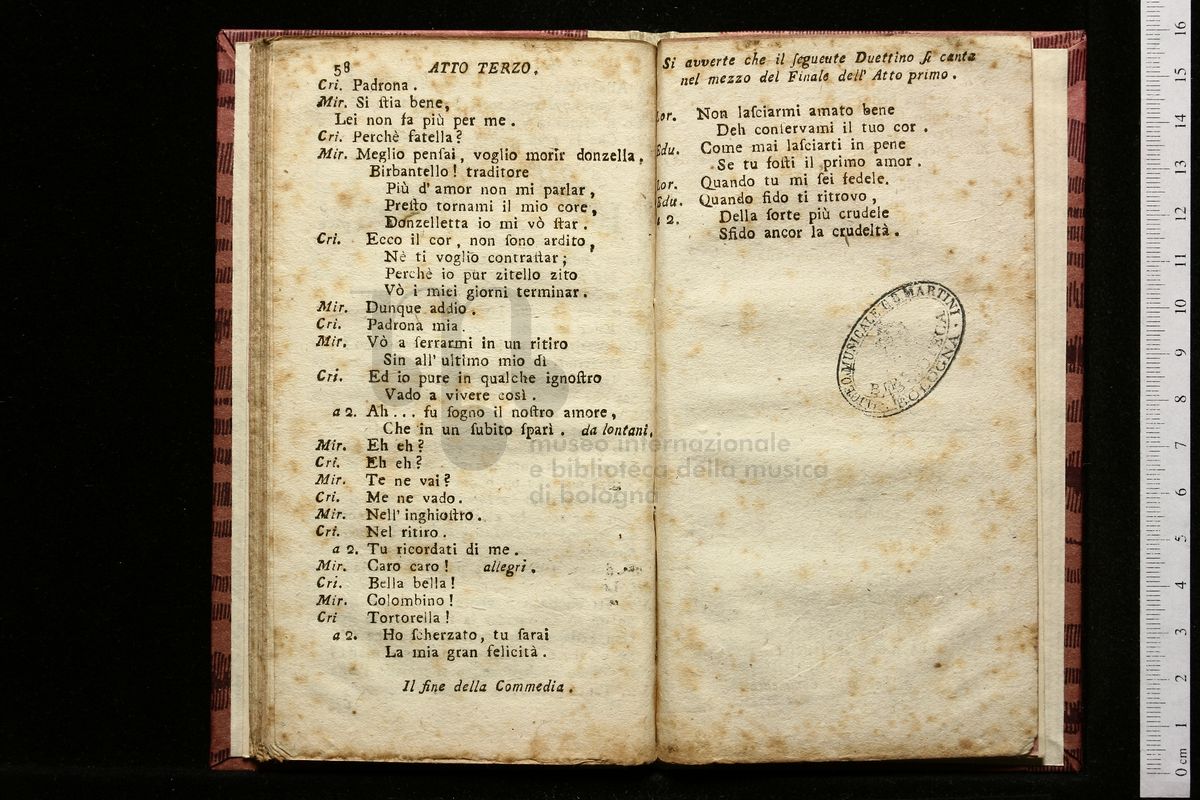 58 ATTO TERZO.
Cri. Padrona.
Mir. Si ſtia bene,
Lei non fa più per me.
Cri. Perchè fatella?
Mir. Meglio penſai, voglio morir donzella,
Birbantello! traditore
Più d'amor non mi parlar,
Preſto tornami il mio core,
Donzelletta io mi vò ſtar.
Cri. Ecco il cor, non ſono ardito,
Nè ti voglio contraſtar;
Perchè io pur zitello zito
Vò i miei giorni terminar.
Mir. Dunque addio.
Cri. Padrona mia.
Mir. Vò a ſerrarmi in un ritiro
Sin all' ultimo mio dì
Cri. Ed io pure in qualche ignoſtro
Vado a vivere così.
a 2. Ah... fu ſogno il noſtro amore,
Che in un ſubito ſparì. da lontani,
Mir. Eh eh?
Cri. Eh eh?
Mir. Te ne vai?
Cri. Me ne vado.
Mir. Nell' inghioſtro.
Cri. Nel ritiro.
a 2. Tu ricordati di me.
Mir. Caro caro! allegri.
Cri. Bella bella!
Mir. Colombino!
Cri Tortorella!
a 2. Ho ſcherzato, tu ſarai
La mia gran felicità.
Il fine della Commedia.
Si avverte che il ſeguente Duettino ſi canta
nel mezzo del Finale dell' Atto primo.
Lor. Non laſciarmi amato bene
Deh conſervami il tuo cor.
Edu. Come mai laſciarti in pene
Se tu foſti il primo amor.
Lor. Quando tu mi ſei fedele.
Edu. Quando fido ti ritrovo,
a 2. Della ſorte più crudele
Sfido ancor la crudeltà.
LICEO MUSICALE G. B. MARTINI
BOLOGNA
museo internazionale
e biblioteca della musica
di bologna
0 cm 1 2 3 4 5 6 7 8 9 10 11 12 13 14 15 16